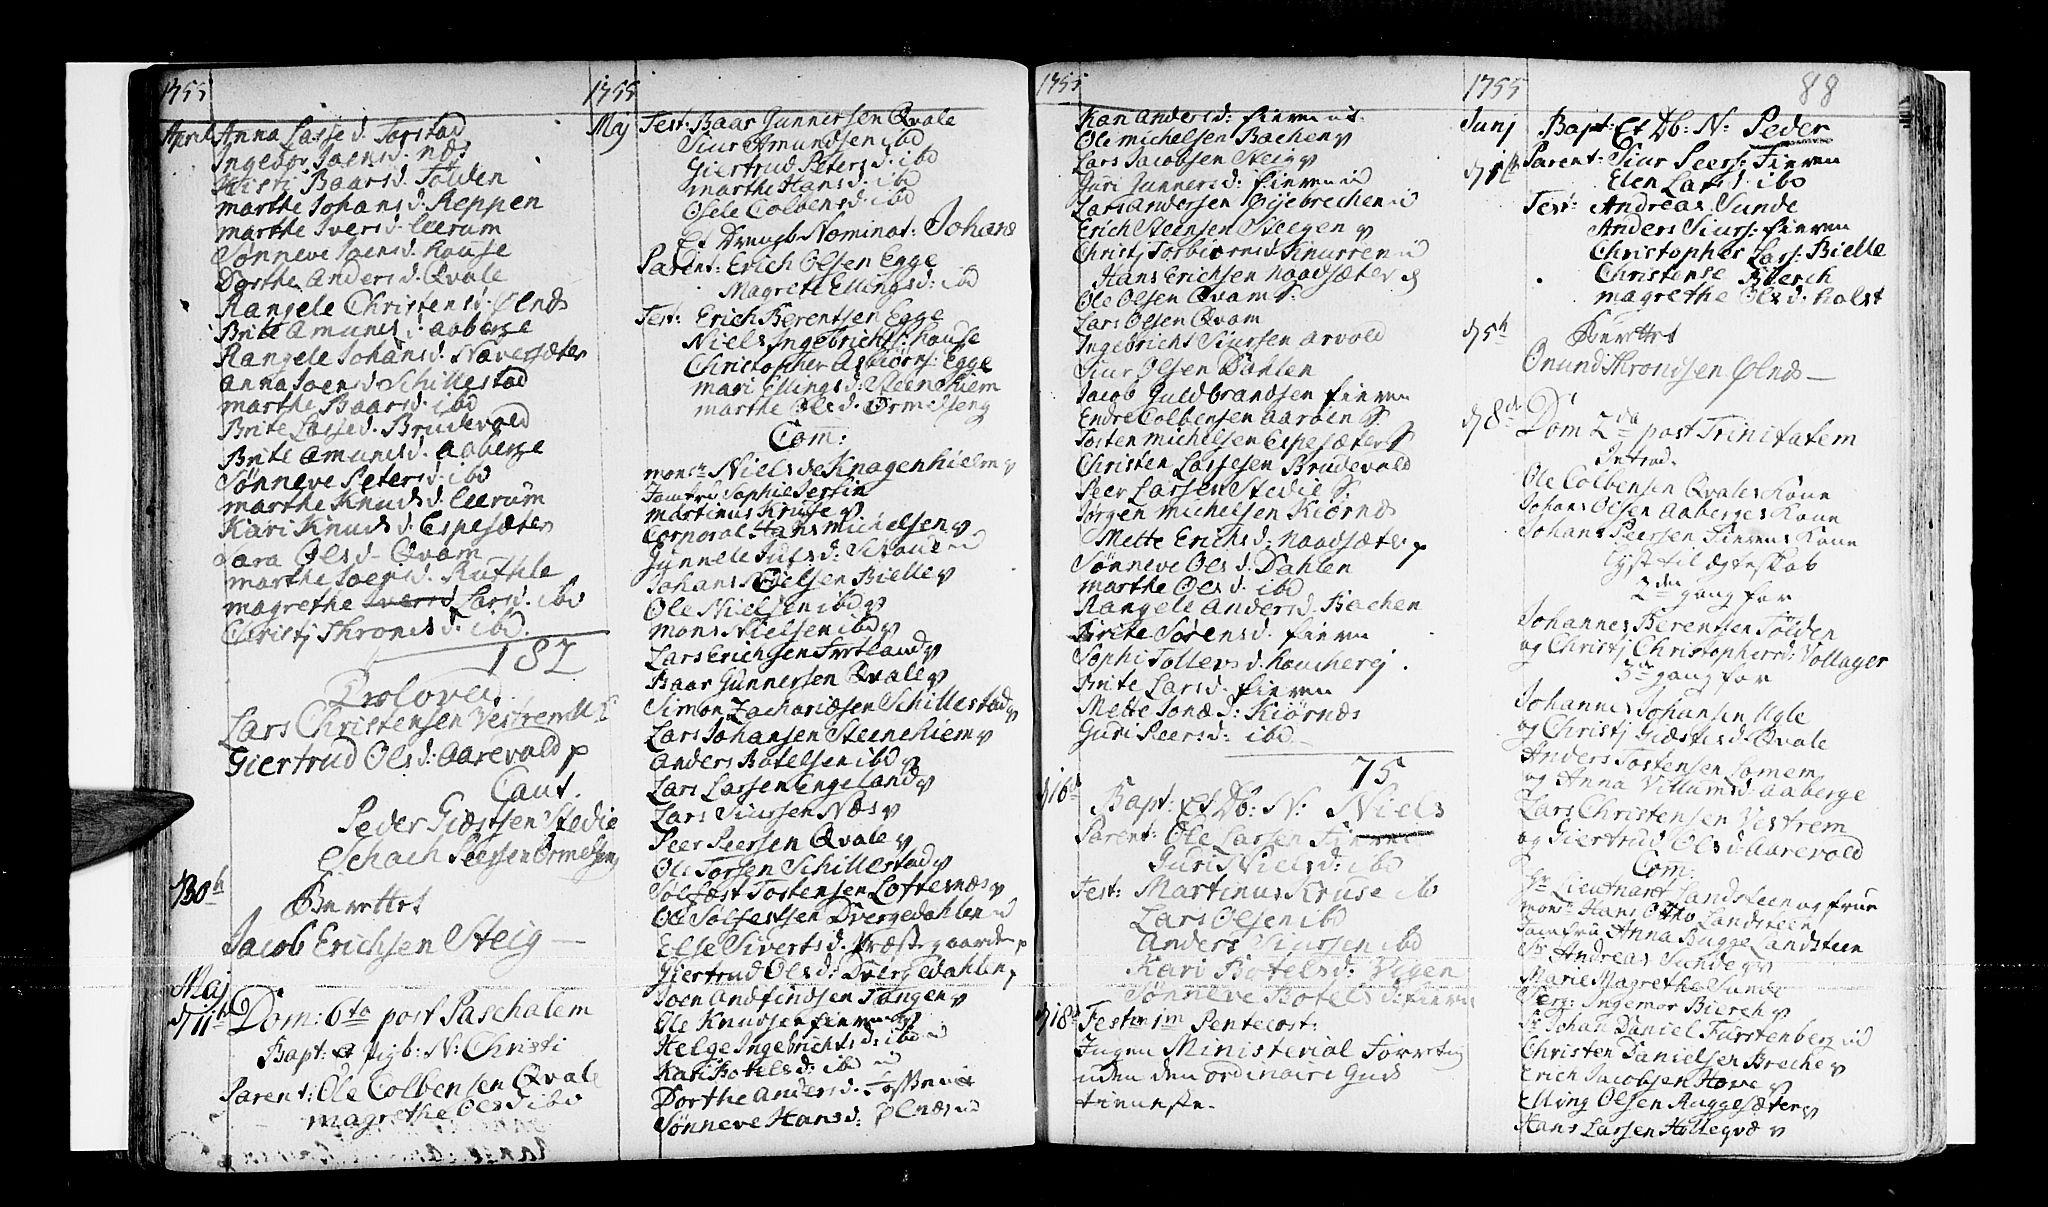 1755
April Anna Lasses d. Torstad
Ingebor Joens d: næs
Kisti Baars d: Tolden
marthe Johans d. Reppen
marthe Ivers d: leerum
Sønneve Joens d: house
Dorthe Anders d: Qvale
Rangele Christens d: Ølnds
Brite Amunds d: aaberge
Rangele Johans d: Næversæter
Anna Joens d. Schillestad
marthe Baars d. ibd
Brite Lasses d. Brudevold
Brite Amunds d. aaberge
Sønneve Peters d: ibd
marthe Knuds d. leerum
Kari Knuds d. Espesæter
Sara Ols d. Qvam
marthe Joens d. Ruthle
magrethe Lars d. ibd
Christj Thrones d. ibd.
182
Trolovei
Lars Christensen Vestrem
Giertrud Ols d: Aarevold p
Caut.
Peder Giæstsen Stedie
Schach Peersen Ormelseng
d 30th
Berettet
Jacob Erichsen Steig —
Maj
d 11th Dom: 6to post Paschalem
Bapt: et pigb: N: Christi
Parent: Ole Colbensen Qvale
magrethe Ols d ibd
1755
Maj Test: Baar Gunnersen Qvale
Siur Amundsen ibd
Giertrud Peters d: ibd
marthe Hans d: ibd
Osele Colbens d: ibd
Et Drengb Nominat: Johans
Parent: Erich Olsen Egge
Magrete Ellings d: ibd
Test: Erich Berentsen Egge
Niels Ingebrichts: house
Christopher Asbiørns: Egge
mari Ellings d: Steenehiem
marthe Ols d. Ormelseng
Com:
monsr Niels de Knagenhielm
Jomfru Sophie Jersin
martinus Kruse
Corporal Hans michelsen
Gunnele Juls d: Schouenud
Johans Nielsen Bielle
Ole Nielsen ibd
mons Nielsen ibd
Lars Erichsen Svrtland
Baar Gunnersen Qvale
Simon Zachariæsen Schillestad
Lars Johansen Steenehiem
Anders Botelsen ibd
Lars Larsen Engeland
Lars Siursen Næs
Peer Peersen Qvale
Ole Torsen Schillestad
Solfæst Tostensen Loftesnæs
Ole Solfestsen Dvergedahlen
Else Siverts d. Præstegaarden
Giertrud Ols d: Dvergedahlen
Joen Andfindsen Tangen
Ole Knudsen fieren
Helge Ingebrichts d: ibd
Kari Botels d: ibd
Dorthe Anders d.
Sønneve Hans d: Ølnæs
1755
Kari Anders d: fieren
Ole michelsen Bachen
Lars Jacobsen Steig
Juri Gunners d: fieren
Lars Andersen Øijebrechen
Erich Steensen Steegen
Christj Torbiørns d Snurren
Hans Erichsen Naadsæter
Ole Olsen Qvam S.
Lars Olsen Qvam
Ingebricht Siursen Arvold
Siur Olsen Dahlen
Jacob Guldbrandsen fieren
Endre Colbensen Aarøen S
Tosten michelsen Espesæter S
Christen Lassesen Brudevold
Peer Larsen Stedie S.
Jørgen michelsen Kiørnæs
Mette Erichs d: Naadsæter
Sønneve Ols d. Dahlen
marthe Ols d. ibd
Rangele Anders d. Bachen
Brite Sørens d. fieren
Sophi Tollevs d. houchereij.
Brite Lars d. fieren
Mette Jonæ d: Kiørnæs
Guri Peers d: ibd
75
d 16d
Bapt: Et Db: N: Niels
Parent: Ole Larsen Fieren
Guri Niels d: ibd
Test: Martinus Kruse ibd
Lars Olsen ibd
Anders Siursen ibd
Kari Botels d: Vigen
Sønneve Botels d: fieren
d 18d Festum 1m Pentecost:
Ingen Ministerial Forretnig
uden den ordinaire Guds
tieneste.
1755 88
Junj Bapt: Et Db: N: Peder
d 1ste Parent: Siur Peers: Fieren
Elen Lars d: ibd
Test: Andreas Sunde
Anders Siurs: fieren
Christopher Lars: Bielle
Christense Bierch
magrethe Ols d. holst
d 5th Berettet
Onund Thronsen Ølnds —
d 8d Dom 2da post Trinitatem
Introd.
Ole Colbensen Qvales Kone
Johans Olsen Aaberges Kone
Johans Peersen Fierens Kone
lyst til ægteskab
2den gang for
Johannes Berentsen Tolden
og Christj Christophers d: Vollager
3de gang for
Johannes Johansen Ugle
og Christj Giæsts d. Qvale
Anders Tostensen Lomem
og Anna Villums d: Aaberge
Lars Christensen Vestrem
og Giertrud Ols d: Aarevold
Com:
Hr Lieutnant Landsteen og frue
monsr Hans Otho Landsteen
Jomfru Anna Bugge Landsteen
Sr Andreas Sunde
Marie Magrethe Sunde
Serg: Ingemor Bierch
Sr Johan Daniel Furstenberg
Christen Danielsen Breche
Erich Jacobsen Hove
Elling Olsen Ruggesæter
Hans Larsen Hillegvæ